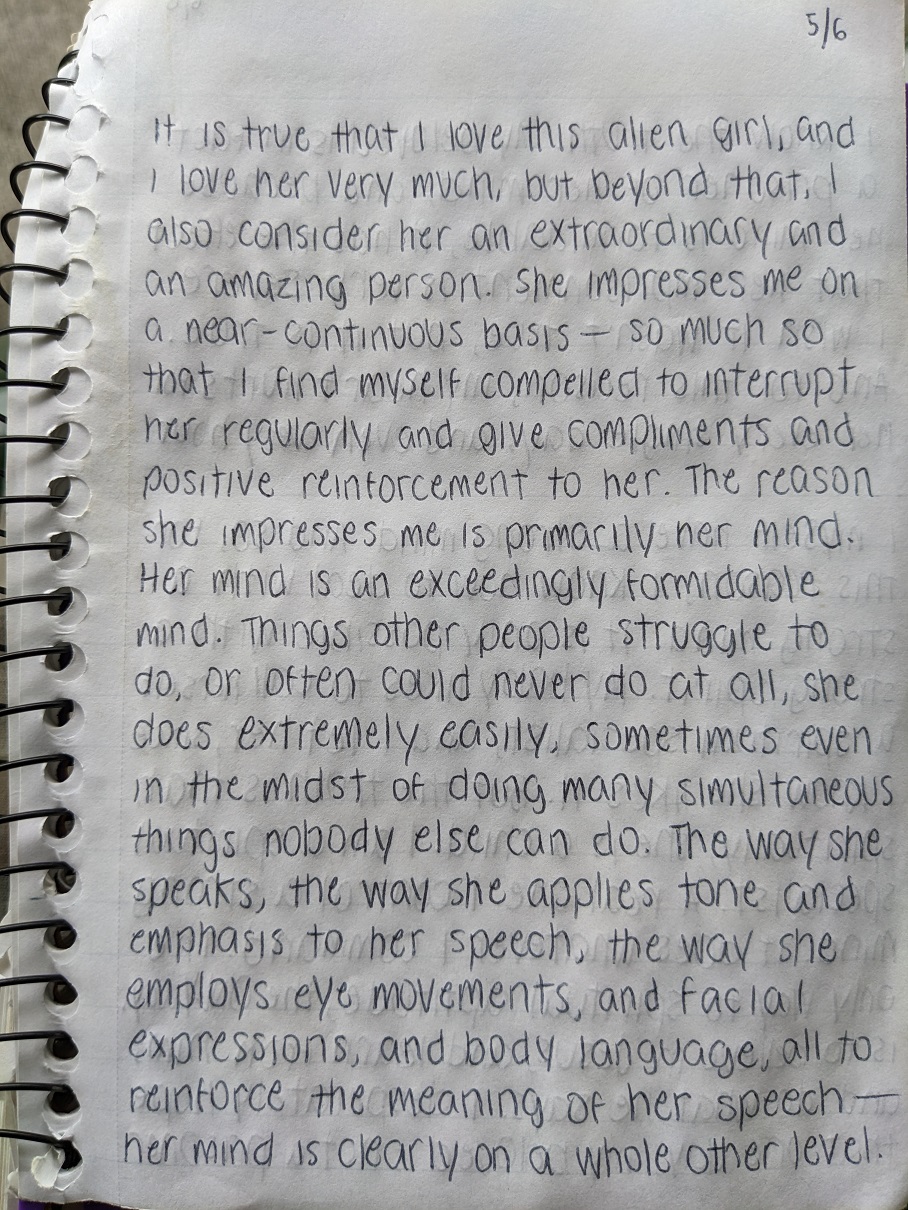 5/6
It is true that I love this alien girl, and
I love her very much, but beyond that, I
also consider her an extraordinary and
an amazing person. She impresses me on
a near-continuous basis — so much so
that I find myself compelled to interrupt
her regularly and give compliments and
positive reinforcement to her. The reason
she impresses me is primarily her mind.
Her mind is an exceedingly formidable
mind. Things other people struggle to
do, or often could never do at all, she
does extremely easily, sometimes even
in the midst of doing many simultaneous
things nobody else can do. The way she
speaks, the way she applies tone and
emphasis to her speech, the way she
employs eye movements, and facial
expressions, and body language, all to
reinforce the meaning of her speech —
her mind is clearly on a whole other level.